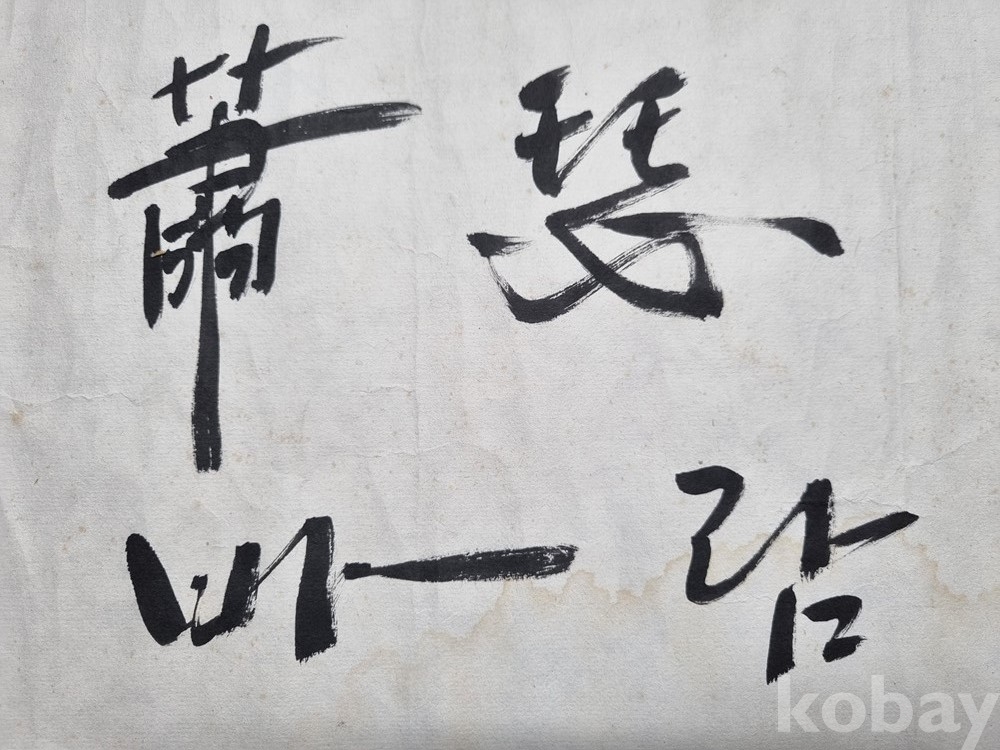 蕭瑟
바람
kobay